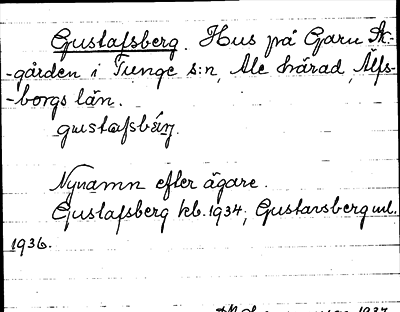 Gustafsberg. Hus på Garn Ak-
-gården i Tunge s:n, Ale härad, Älfs-
-borgs län.
gustafsbärj.
Nynamn efter ägare.
Gustafsberg kb. 1934; Gustavsberg ml.
1936.